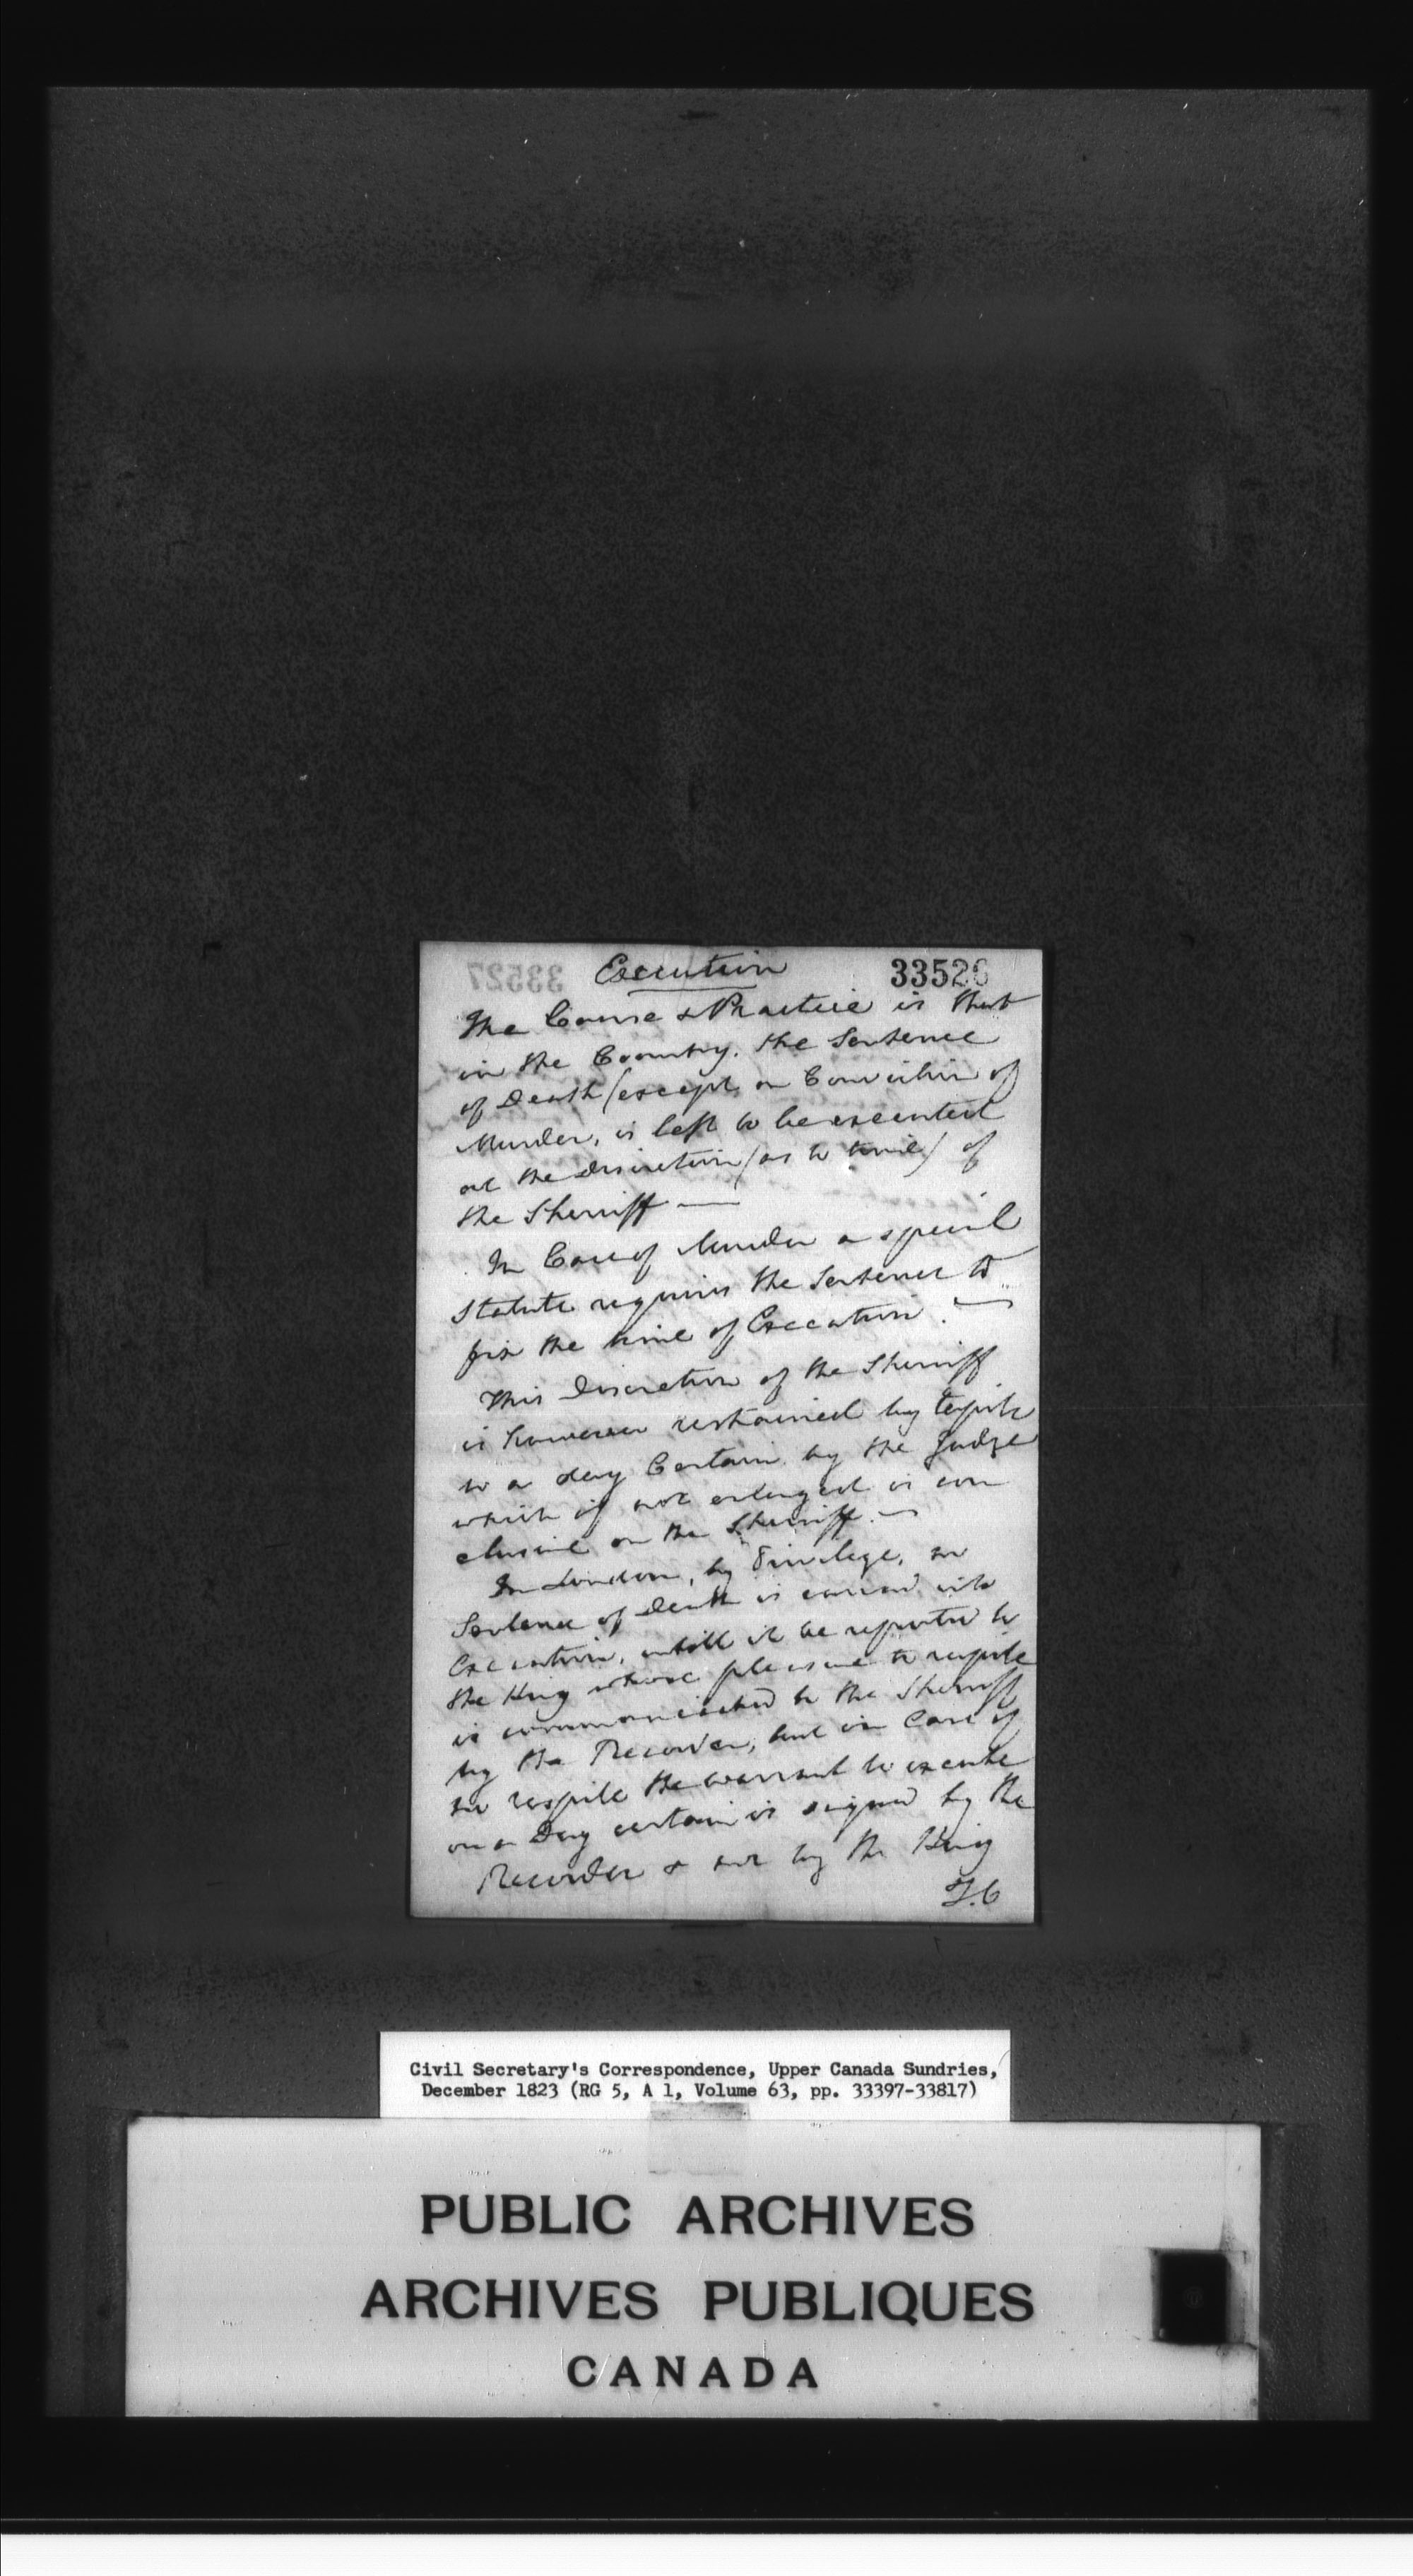 Execution 33526
The Course & Practice is that
in the Country. the Sentence
of Death (except on Conviction of
Murder, is left to be executed
at the Discretion (as to time) of
the Sherriff —
In Case of Murder a special
Statute requires the Sentence to
fix the time of Execution. —
This Discretion of the Sherriff
is however restrained by respite
to a day Certain by the Judge
which if not enlarged is con
clusive on the Sherriff. —
In London, by Privilege, no
Sentence of Death is carried into
Execution, untill it be reported to
the King whose pleasure to respite
is communicated to the Sherriff
by the Recorder, but in Case of
no respite the warrant to execute
on a Day certain is signed by the
Recorder & not by the King
Civil Secretary's Correspondence, Upper Canada Sundries,
December 1823 (RG 5, A 1, Volume 63, pp. 33397-33817)
PUBLIC ARCHIVES
ARCHIVES PUBLIQUES
CANADA